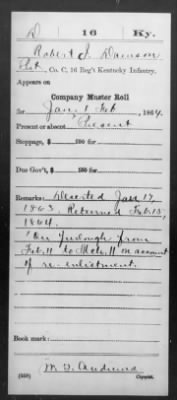 D 16 Ky.
Robert J. Dawson
Pvt., Co. C, 16 Reg't Kentucky Infantry.
Appears on
Company Muster Roll
for Jan. & Feb, 1864.
Present or absent Present
Stoppage, $ 100 for
Due Gov't, $ 100 for
Remarks: Deserted Jan 17,
1863. Returned Feb. 15,
1864.
"On furlough from
Feb. 11 to Mch. 11 on account
of re-enlistment.
Book mark:
M. W.
(358) Copyist.